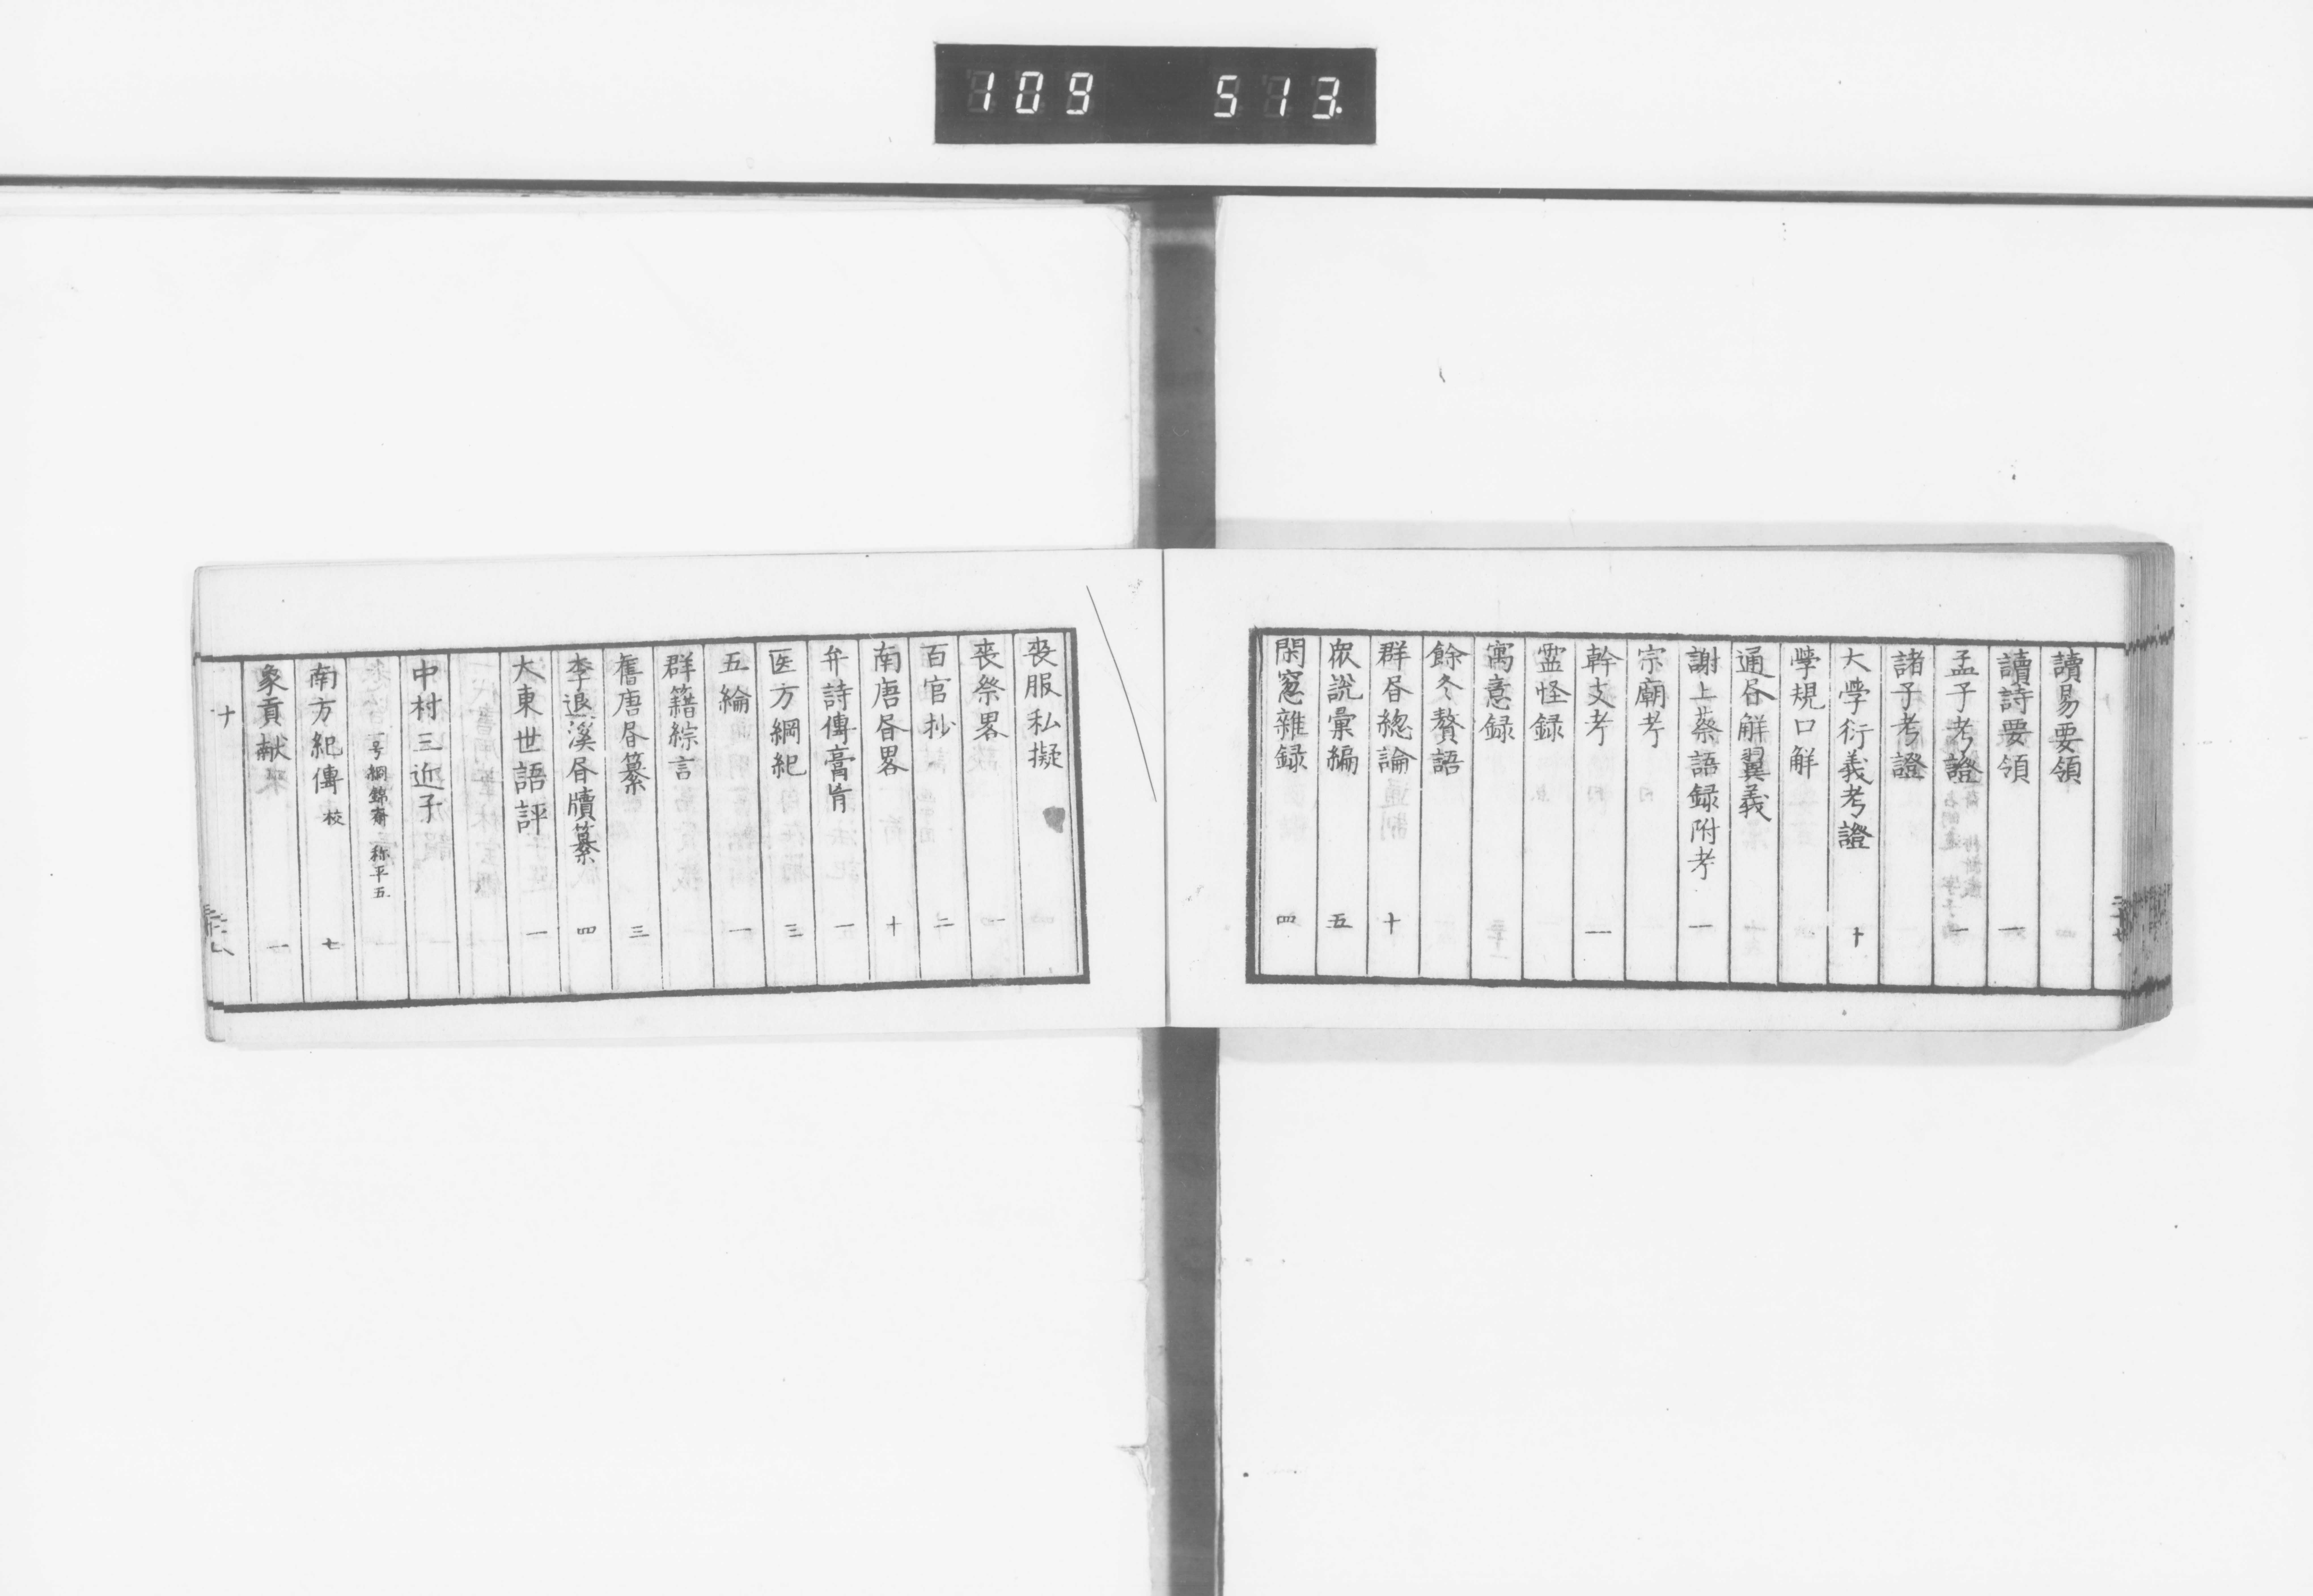 109 513
讀易要領
讀詩要領 一
孟子考證 一
諸子考證
大學衍義考證 十
學規口解
通各解翼義
謝上蔡語録附考 一
宗廟考
幹支考 一
霊怪録
寓意録
餘冬贅語
群昏総論 十
衆説彙編 五
閑窓雜録 四
丧服私擬
丧祭畧 一
百官抄 二
南唐昏畧 十
弁詩傳膏肓 一
医方綱紀 三
五綸 一
群籍綜言
舊唐昏纂 三
李退溪昏牘纂 四
大東世語評 一
中村三近子
一号絅錦斎 称平五
南方紀傳 校 七
象貢献 一
十